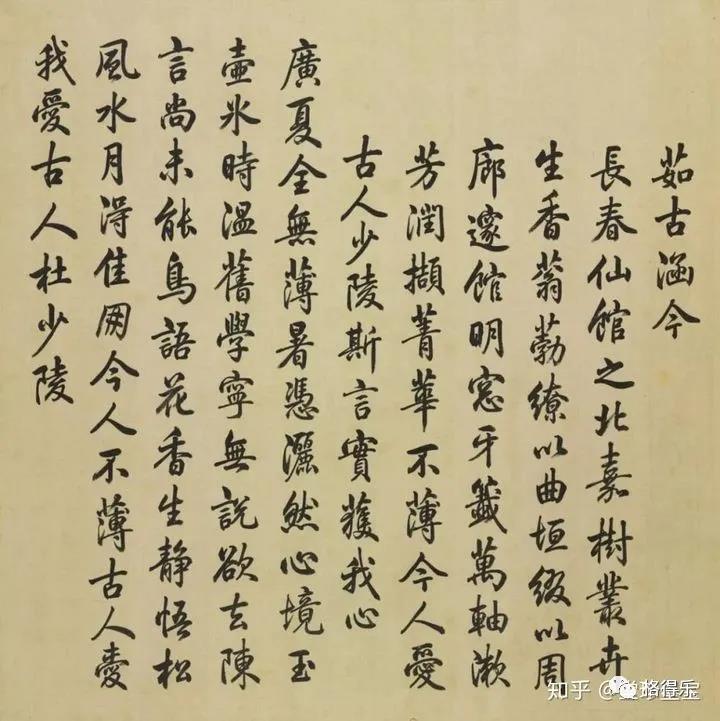 茹古涵今
長春仙館之北嘉樹叢卉
生香蓊葧繚以曲垣綴以周
廊邃館明窓牙籤萬軸漱
芳潤擷菁華不薄今人愛
古人少陵斯言實獲我心
廣夏全無薄暑憑灑然心境玉
壺氷時溫舊學寧無說欲去陳
言尚未能鳥語花香生静悟松
風水月淂佳朋今人不薄古人愛
我愛古人杜少陵
知乎 @
格得乐